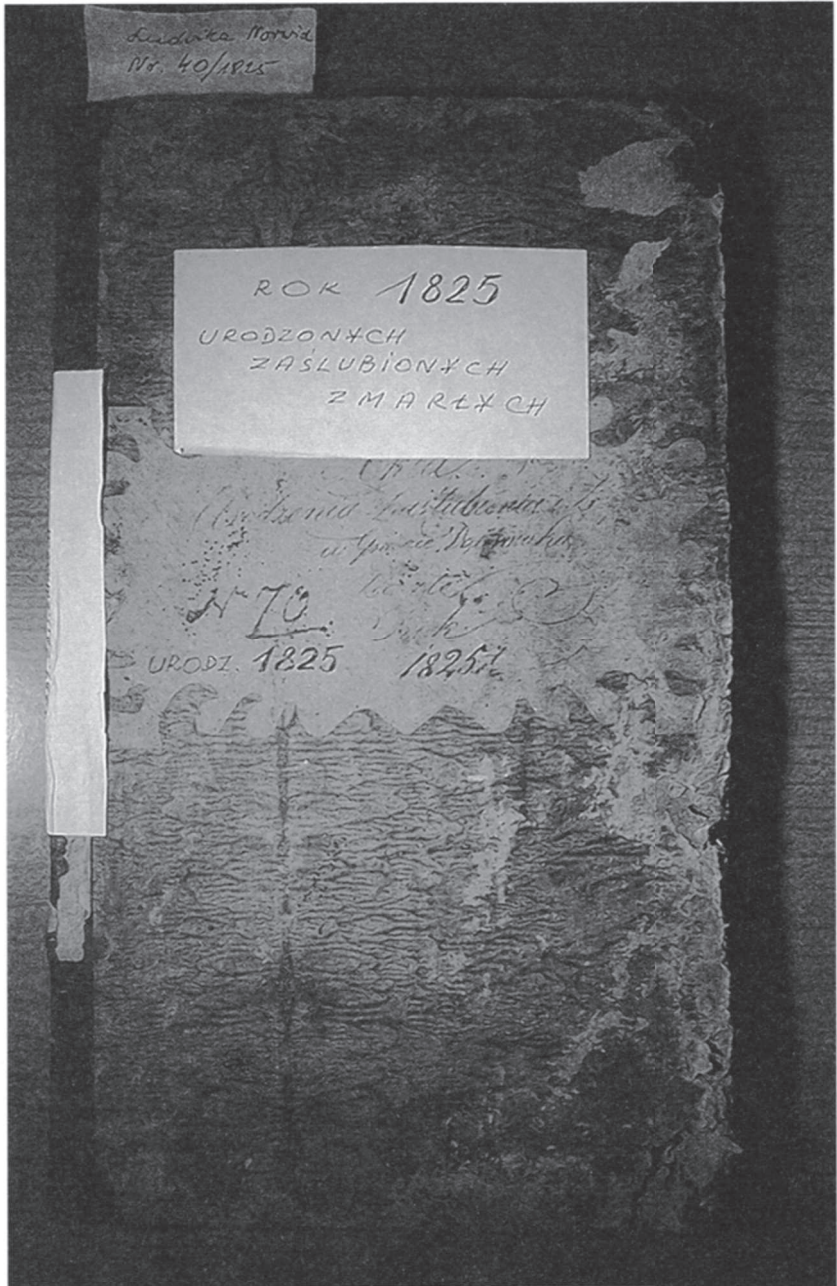 Ludvika Norwid
Nr. 40/1825
ROK 1825
URODZONYCH
ZAŚLUBIONYCH
ZMARŁYCH
Urodzenia Zaślubienia
w
N 70
URODZ. 1825 1825